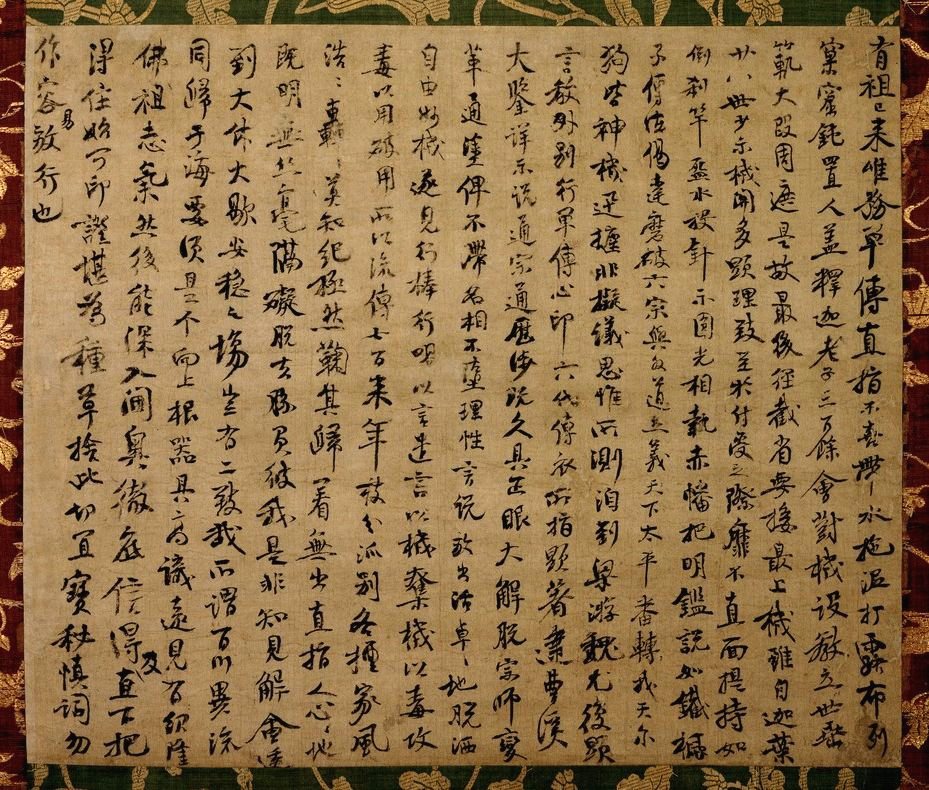 有祖已来唯務單傳直指不喜帶水拖泥打露布列
窠窟鈍置人蓋釋迦老子三百餘會對機設教立世垂
範大段周遮是故最後徑截省要接最上機雖自迦葉
廿八世少示機關多顯理致至於付受之際靡不直面提持如
倒刹竿盋水投針示圓光相執赤幡把明鑑説如鐵橛
子傳法偈達磨破六宗與外道立義天下太平番轉我天尓
狗皆神機迅捷非擬議思惟所測洎到梁游魏尤復顯
言教外別行單傳心印六代傳衣所指顯著逮曹溪
大鑒詳示説通宗通歷涉既久具正眼大解脱宗師變
革通塗俾不滯名相不墮理性言説放出活卓〻地脱洒
自由妙機遂見行棒行喝以言遣言以機奪機以毒攻
毒以用破用所以流傳七百来年枝分派別各擅家風
浩〻轟〻莫知紀極然鞠其歸着無出直指人心〻地
既明無絲毫隔礙脱去勝負彼我是非知見解會透
到大休大歇安穩之場豈有二致哉所謂百川異流
同歸于海要須是个向上根器具高識遠見有紹隆
佛祖志氣然後能深入閫奧徹底信得及直下把
得住始可印證堪為種草捨此切宜寶秘慎詞勿
作容易放行也